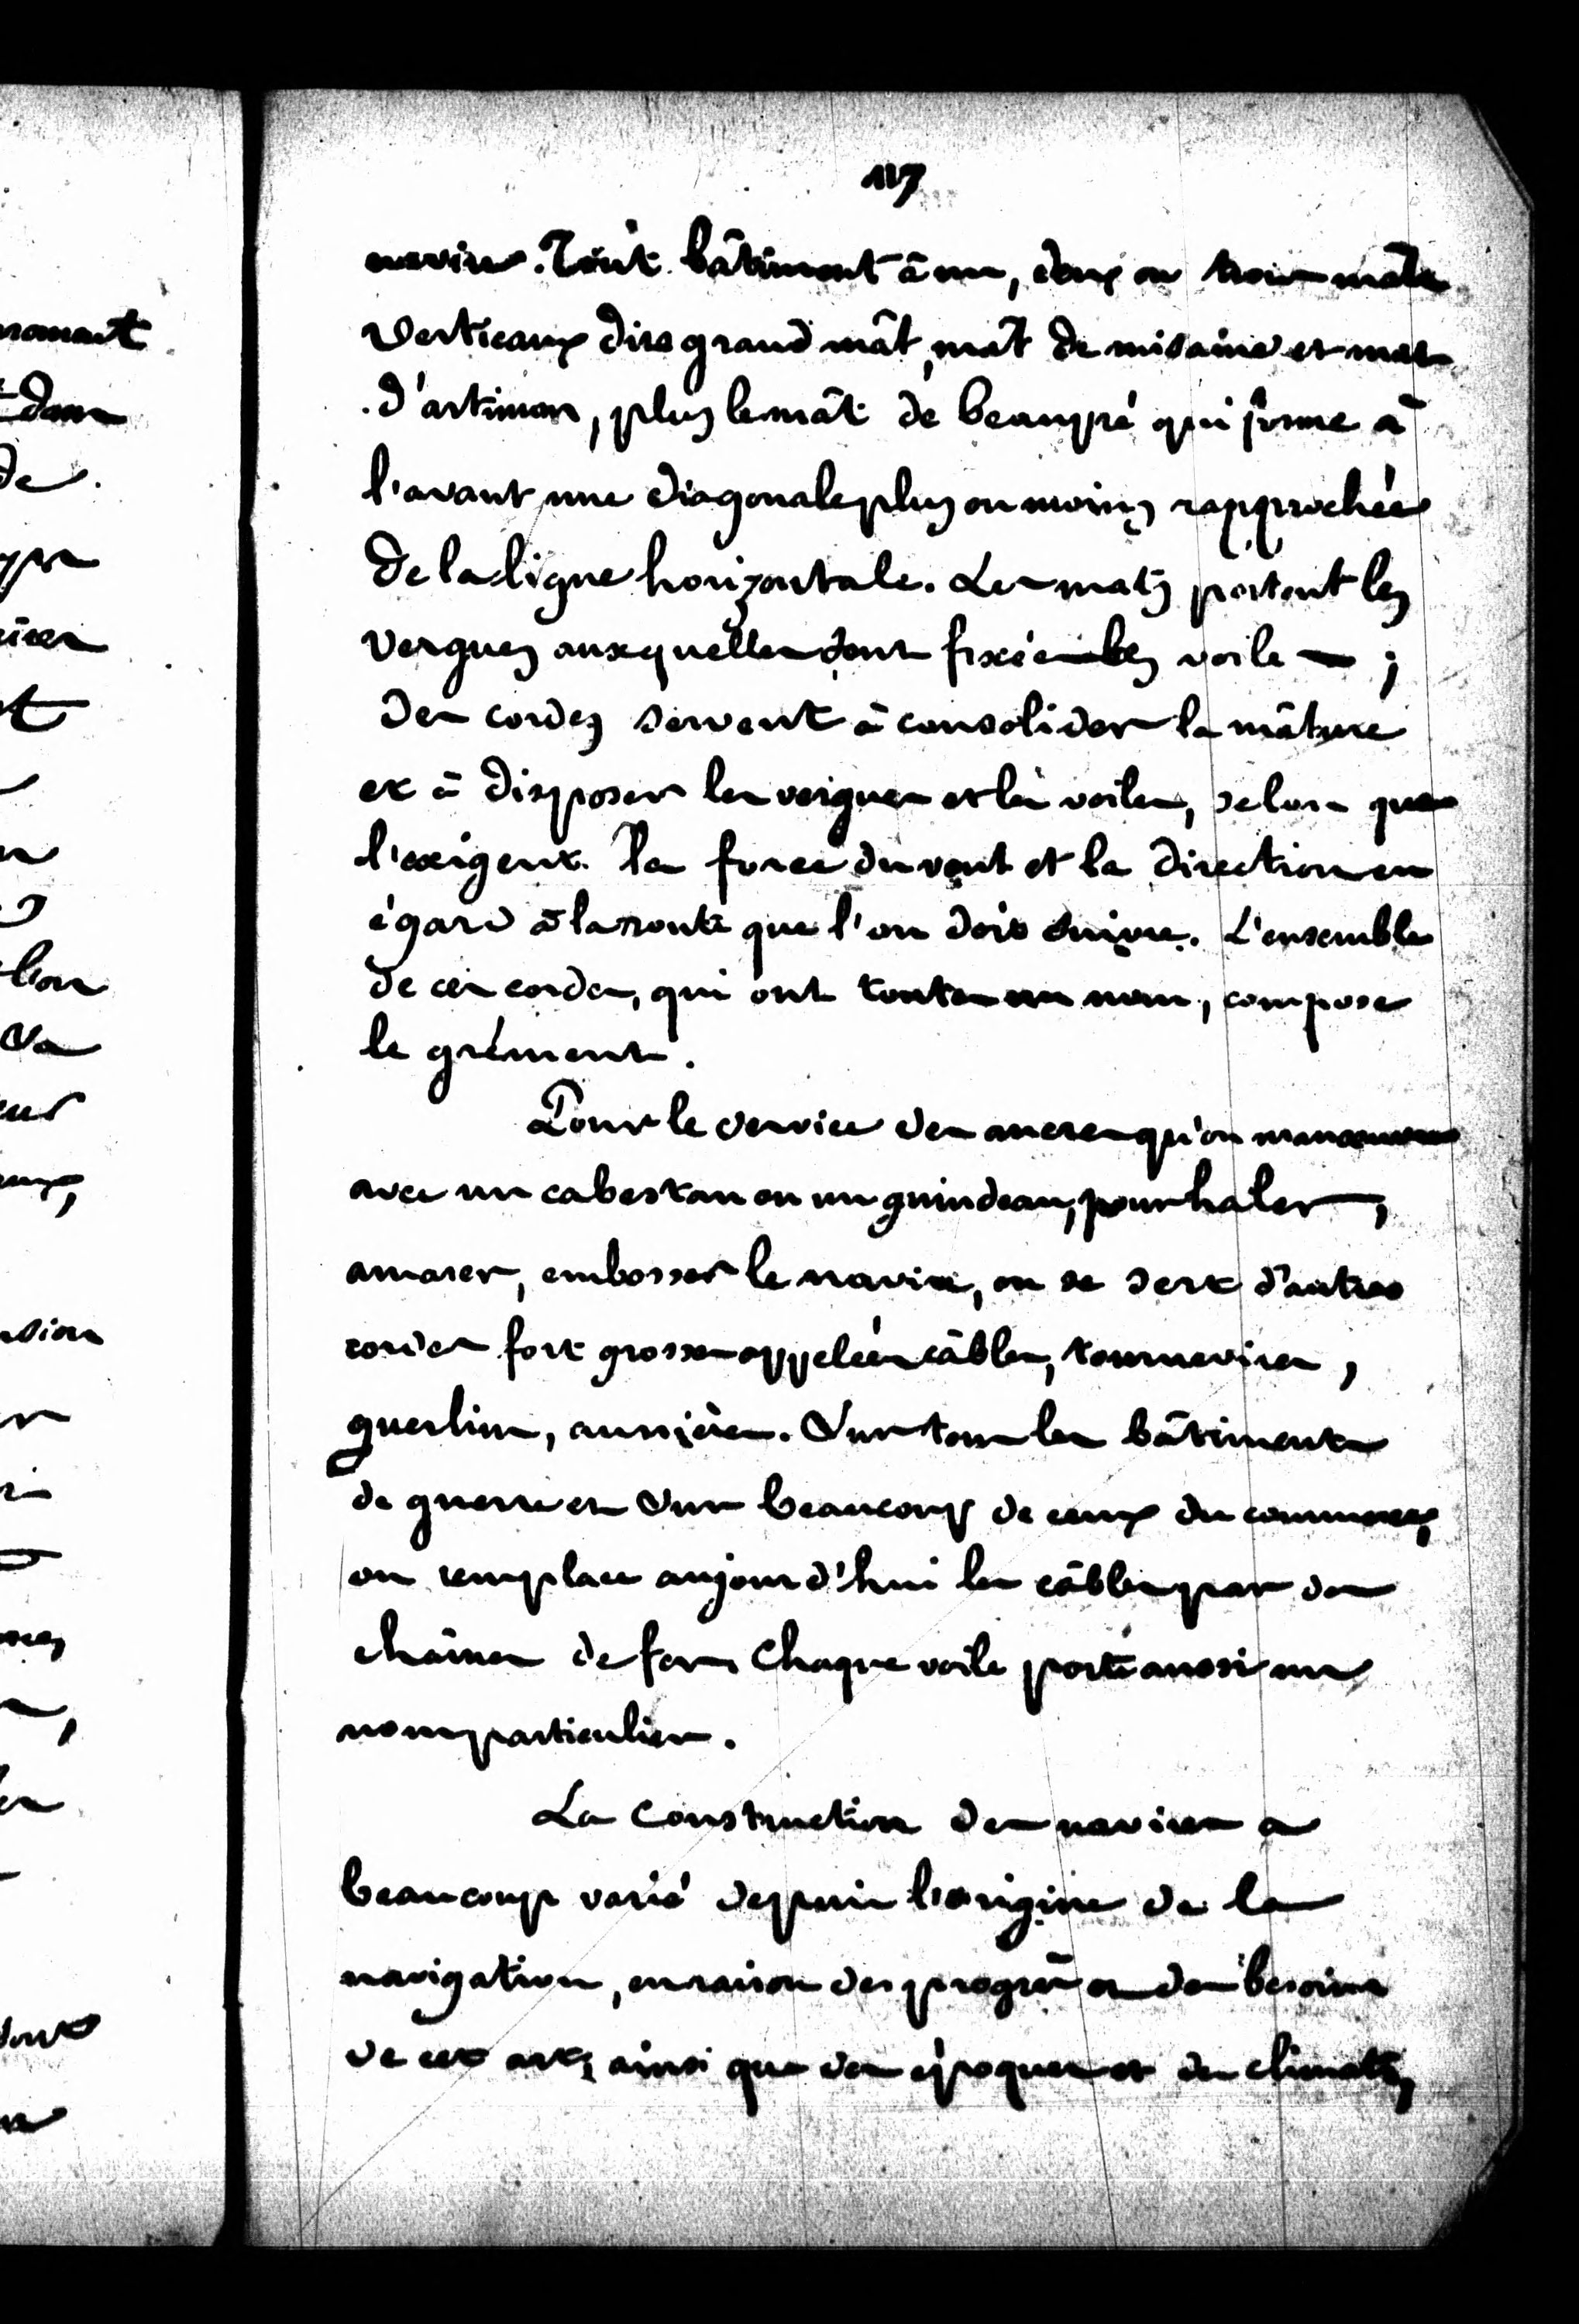 117
navire. Tout bâtiment à un, deux ou trois mâts
verticaux dits grand mât, mât de misaine et mat
d'artimon, plus le mât de beaupré qui forme à
l'avant une diagonale plus ou moins rapprochée
de la ligne horizontale. Les mats portent les
vergues auxquelles sont fixées les voiles ;
des cordes servent à consolider la mâture
et à disposer les vergues et les voiles, selon que
l'exigent la force du vent et la direction eu
égard à la route que l'on doit suivre. L'ensemble
de ces cordes, qui ont toutes un nom, compose
le grément.
Pour le service des ancres qu'on manoeuvre
avec un cabestan ou un guindeau, pour haler,
amarer, embosser le navire, on se sert d'autres
cordes fort grosses appelées câbles, tournevires,
guerlins, aussières. Sur tous les bâtiments
de guerre et sur beaucoup de ceux du commerce,
on remplace aujourd'hui les câbles par des
chaînes de fer. Chaque voile porte aussi un
nom particulier.
La construction des navires a
beaucoup varié depuis l'origine de la
navigation, en raison des progrès et des besoins
de cet art, ainsi que des époques et des climats,